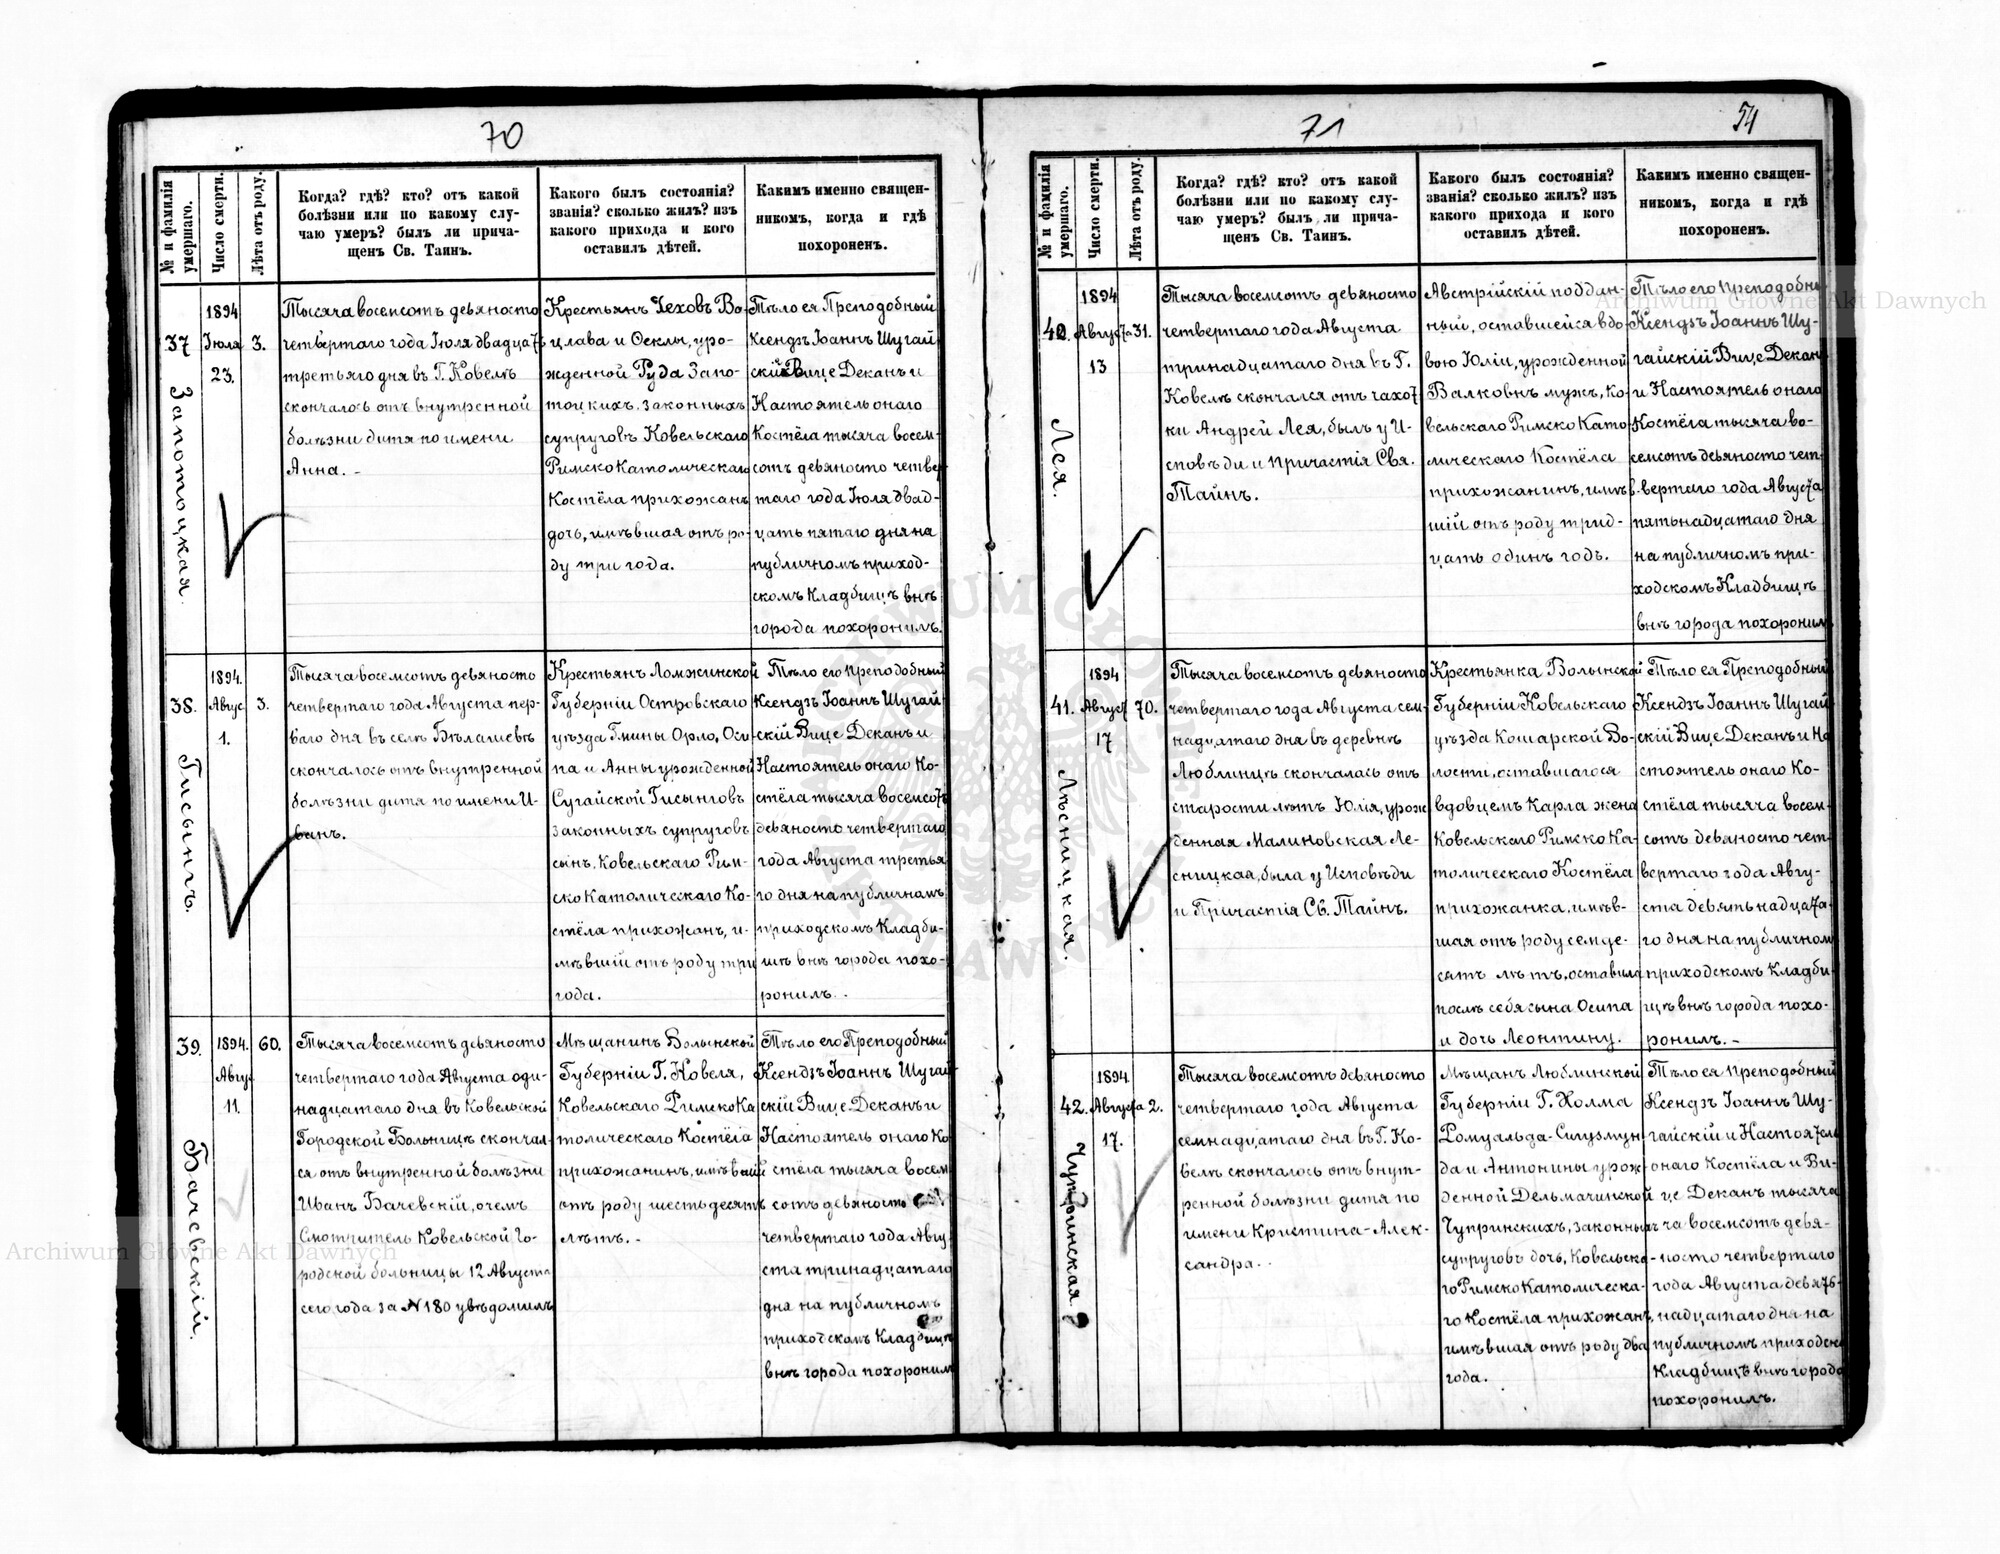 70
№ и фамилія умершаго.
Число смерти.
Лѣта отъ роду.
Когда? гдѣ? кто? отъ какой
болѣзни или по какому слу-
чаю умеръ? былъ ли прича-
щенъ Св. Таинъ.
Какого былъ состоянія?
званія? сколько жилъ? изъ
какого прихода и кого
оставилъ дѣтей.
Какимъ именно священ-
никомъ, когда и гдѣ
похороненъ.
37
Запотоцкая
1894
Іюля
23.
3.
Тысяча восемсотъ девяносто
четвертаго года Іюля двадцать
третьяго дня въ Г. Ковелѣ
скончалось отъ внутренной
болѣзни дитя по имени
Анна. -
Крестьянъ Чеховъ Во-
цлава и Феклы, уро-
жденной Руда Запо-
тоцкихъ, законныхъ
супруговъ Ковельскаго
Римско Католическаго
Костёла прихожанъ
дочь, имѣвшая отъ ро-
ду три года.
Тѣло ея Преподобный
Ксендзъ Іоаннъ Шугай-
скій Вице Деканъ и
Настоятель онаго
Костёла тысяча восем-
сотъ девяносто четвер
таго года Іюля двад-
цать пятаго дня на
публичномъ приход-
скомъ Кладбищѣ внѣ
города похоронилъ.
38.
Гисынгъ.
1894.
Авгус
1.
3.
Тысяча восемсотъ девяносто
четвертаго года Августа пер-
ваго дня въ селѣ Бѣлашевѣ
скончалось отъ внутренной
болѣзни дитя по имени И-
ванъ.
Крестьянъ Ломжинской
Губерніи Островскаго
уѣзда Гмины Орло, Оси-
па и Анны урожденной
Сугайской Гисынговъ
законныхъ супруговъ
сынъ, Ковельскаго Рим-
ско Католическаго Ко-
стёла прихожанъ, и-
мѣвшій отъ роду три
года.
Тѣло его Преподобный
Ксендзъ Іоаннъ Шугай-
скій Вице Деканъ и
Настоятель онаго Ко-
стёла тысяча восемсотъ
девяносто четвертаго
года Августа третья
го дня на публичномъ
приходскомъ Кладби-
щѣ внѣ города похо-
ронилъ.
39.
Бачевскій.
1894.
Авгус
11.
60.
Тысяча восемсотъ девяносто
четвертаго года Августа оди-
надцатаго дня въ Ковельской
Городской Больницѣ скончал-
ся отъ внутренной болѣзни
Иванъ Бачевскій, о чемъ
Смотритель Ковельской Го-
родской больницы 12 Августа
сего года за N 180 увѣдомилъ
Мѣщанинъ Волынской
Губерніи Г. Ковеля,
Ковельскаго Римско Ка
толическаго Костёла
прихожанинъ, имѣвшій
отъ роду шестьдесятъ
лѣтъ. -
Тѣло его Преподобный
Ксендзъ Іоаннъ Шугай-
скій Вице Деканъ и
Настоятель онаго Ко
стёла тысяча восем
сотъ девяносто
четвертаго года Авгу
ста тринадцатаго
дня на публичномъ
приходскомъ Кладбищѣ
внѣ города похоронилъ
71
54
№ и фамилія умершаго.
Число смерти.
Лѣта отъ роду.
Когда? гдѣ? кто? отъ какой
болѣзни или по какому слу-
чаю умеръ? былъ ли прича-
щенъ Св. Таинъ.
Какого былъ состоянія?
званія? сколько жилъ? изъ
какого прихода и кого
оставилъ дѣтей.
Какимъ именно священ-
никомъ, когда и гдѣ
похороненъ.
40.
Лея.
1894
Августа
13
31.
Тысяча восемсотъ девяносто
четвертаго года Августа
тринадцатаго дня въ Г.
Ковелѣ скончался отъ чахот
ки Андрей Лея, былъ у И-
сповѣди и Причастія Свя.
Тайнъ.
Австрійскій поддан-
ный, оставшейся вдо-
вою Юліи, урожденной
Валковнъ мужъ, Ко-
вельскаго Римско Като-
лическаго Костёла
прихожанинъ, имѣв-
шій отъ роду трид-
цать одинъ годъ.
Тѣло его Преподобный
Ксендзъ Іоаннъ Шу-
гайскій Вице Деканъ
и Настоятель онаго
Костёла тысяча во-
семсотъ девяносто чет-
вертаго года Августа
пятьнадцатаго дня
на публичномъ при-
ходскомъ Кладбищѣ
внѣ города похоронилъ
41.
Лѣсницкая.
1894
Август
17
70.
Тысяча восемсотъ девяносто
четвертаго года Августа сем-
надцатаго дня въ деревнѣ
Люблинцѣ скончалась отъ
старости лѣтъ Юлія, урож
денная Малиновская Ле-
сницкая, была у Исповѣди
и Причастія Св. Тайнъ.
Крестьянка Волынской
Губерніи Ковельскаго
уѣзда Кошарской Во-
лости, оставшагося
вдовцемъ Карла жена
Ковельскаго Римско Ка-
толическаго Костёла
прихожанка, имѣв-
шая отъ роду семде-
сятъ лѣтъ, оставила
послѣ себя сына Осипа
и дочь Леонтину.
Тѣло ея Преподобный
Ксендзъ Іоаннъ Шугай
скій Вице Деканъ и На
стоятель онаго Ко-
стёла тысяча восем-
сотъ девяносто чет-
вертаго года Авгу-
ста девятьнадцата-
го дня на публичном
приходскомъ Кладби-
щѣ внѣ города похо-
ронилъ. -
42.
Чупринская
1894
Августа
17.
2.
Тысяча восемсотъ девяносто
четвертаго года Августа
семнадцатаго дня въ Г. Ко-
велѣ скончалось отъ внут-
ренной болѣзни дитя по
имени Кристина-Алек-
сандра.
Мѣщанъ Люблинской
Губерніи Г. Холма
Ромуальда-Сигузмун
да и Антонины урож-
денной Дельмачинской
Чупринскихъ, законныхъ
супруговъ дочь, Ковельска-
го Римско Католическа-
го Костёла прихожанъ,
имѣвшая отъ роду два
года.
Тѣло ея Преподобный
Ксендзъ Іоаннъ Шу-
гайскій и Настоятель
онаго Костёла и Ви-
це Деканъ тысяча
восемсотъ девя-
носто четвертаго
года Августа девять-
надцатаго дня на
публичномъ приходск
Кладбищѣ внѣ города
похоронилъ.
Archiwum Główne Akt Dawnych
Archiwum Główne Akt Dawnych
ARCHIWUM GŁÓWNE AKT DAWNYCH